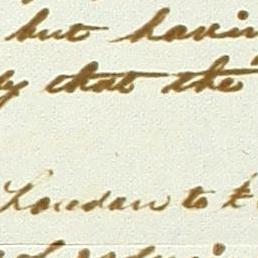 but havin
y that the
London to t